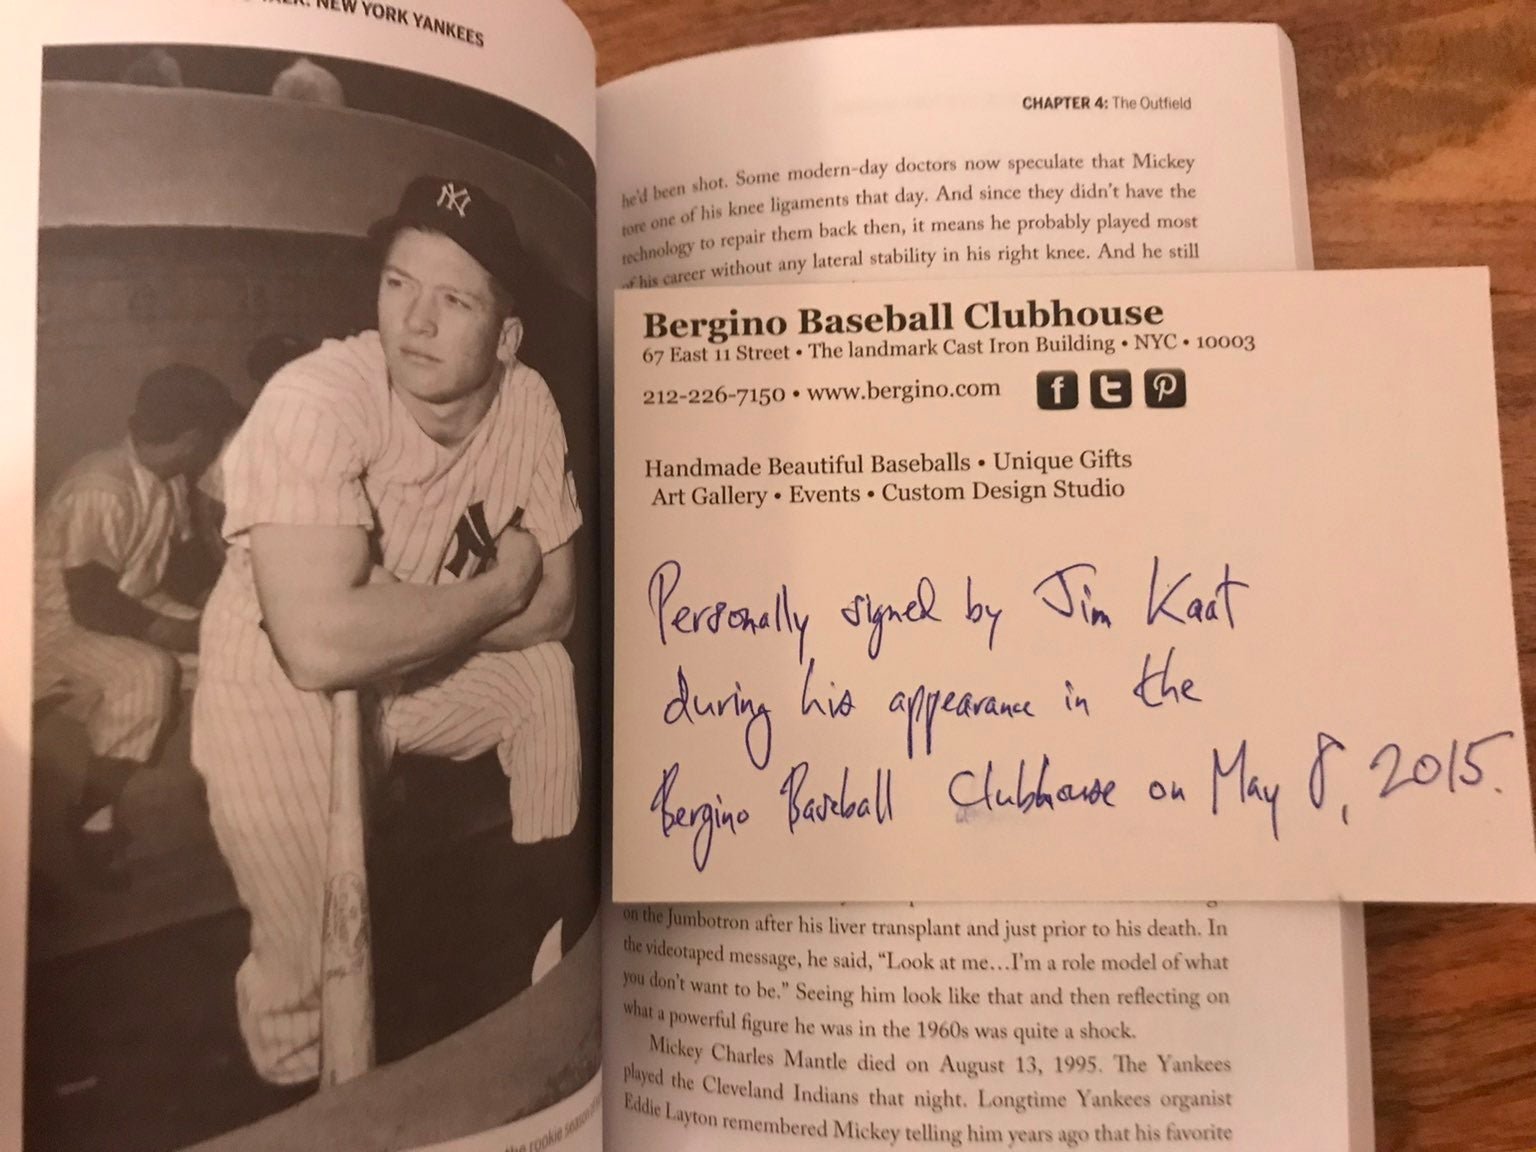 NEW YORK YANKEES
NY
the rookie season
CHAPTER 4: The Outfield
he'd been shot. Some modern-day doctors now speculate that Mickey
tore one of his knee ligaments that day. And since they didn't have the
technology to repair them back then, it means he probably played most
of his career without any lateral stability in his right knee. And he still
Bergino Baseball Clubhouse
67 East 11 Street • The landmark Cast Iron Building • NYC • 10003
212-226-7150 • www.bergino.com f t P
Handmade Beautiful Baseballs • Unique Gifts
Art Gallery • Events • Custom Design Studio
Personally signed by Jim Kaat
during his appearance in the
Bergino Baseball Clubhouse on May 8, 2015.
on the Jumbotron after his liver transplant and just prior to his death. In
the videotaped message, he said, “Look at me…I'm a role model of what
you don't want to be.” Seeing him look like that and then reflecting on
what a powerful figure he was in the 1960s was quite a shock.
Mickey Charles Mantle died on August 13, 1995. The Yankees
played the Cleveland Indians that night. Longtime Yankees organist
Eddie Layton remembered Mickey telling him years ago that his favorite